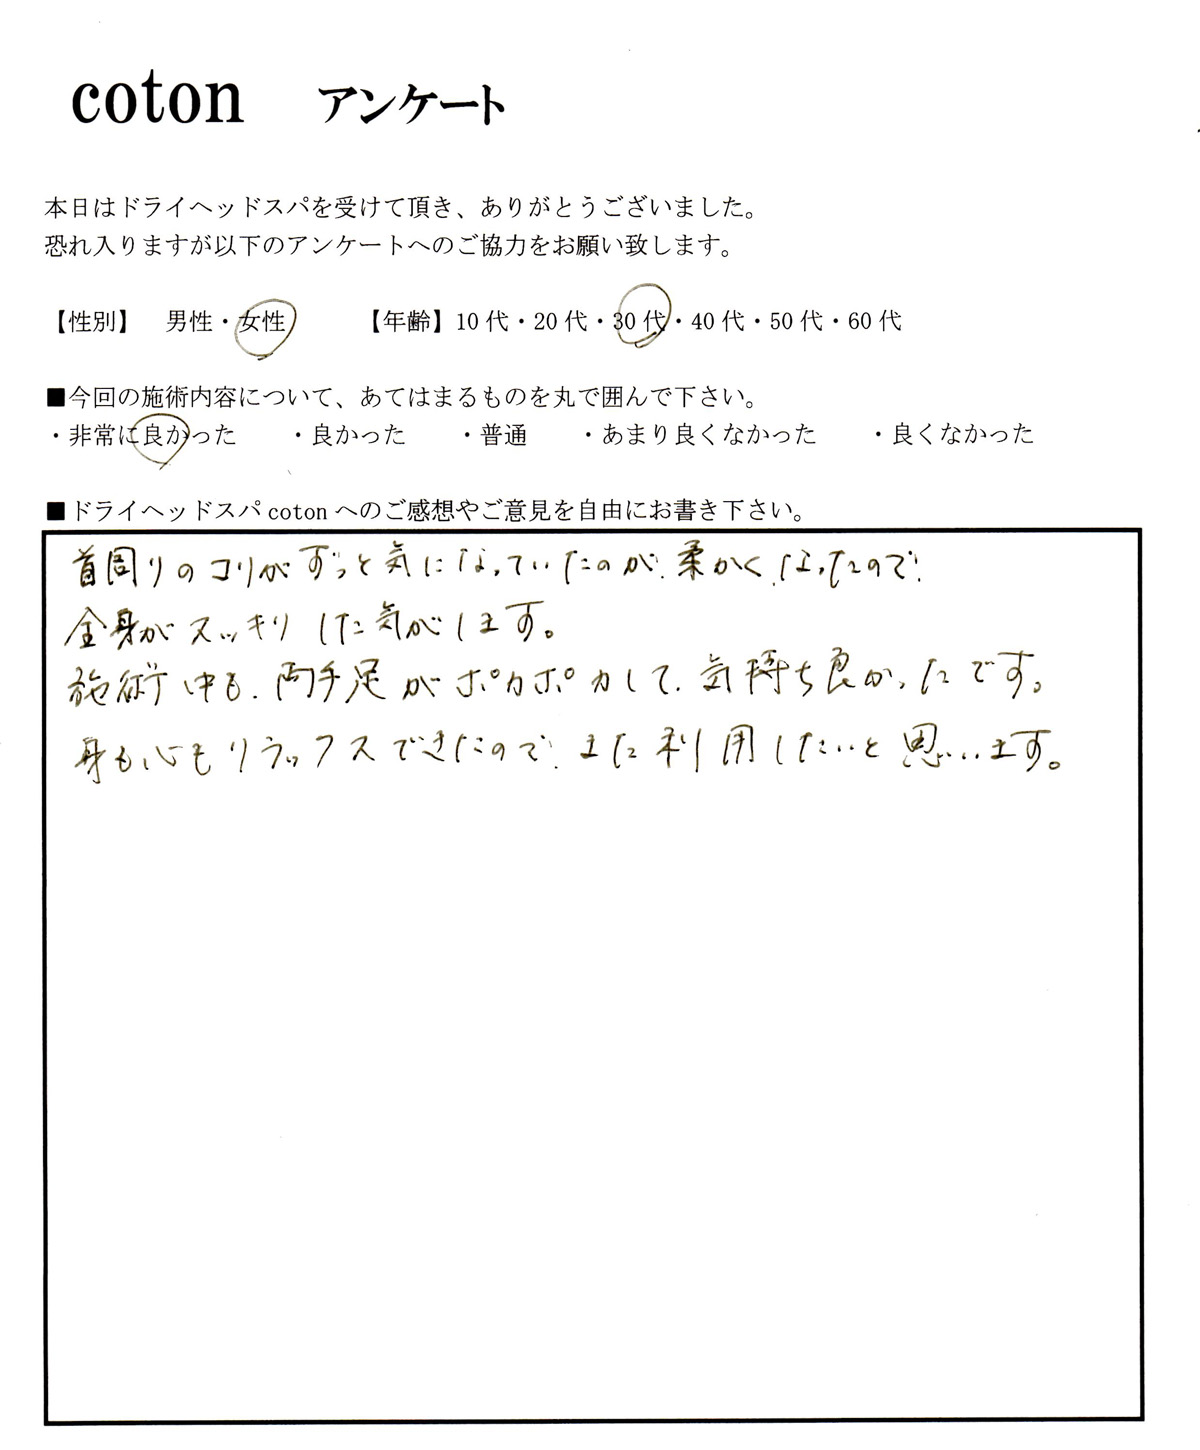 coton アンケート
本日はドライヘッドスパを受けて頂き、ありがとうございました。
恐れ入りますが以下のアンケートへのご協力をお願い致します。
【性別】 男性・女性 【年齢】10代・20代・30代・40代・50代・60代
■今回の施術内容について、あてはまるものを丸で囲んで下さい。
・非常に良かった ・良かった ・普通 ・あまり良くなかった ・良くなかった
■ドライヘッドスパcotonへのご感想やご意見を自由にお書き下さい。
首周りのコリがずっと気になっていたのが、柔かくなったので、
全身がスッキリした気がします。
施術中も、両手足がポカポカして、気持ち良かったです。
身も心もリラックスできたので、また利用したいと思います。